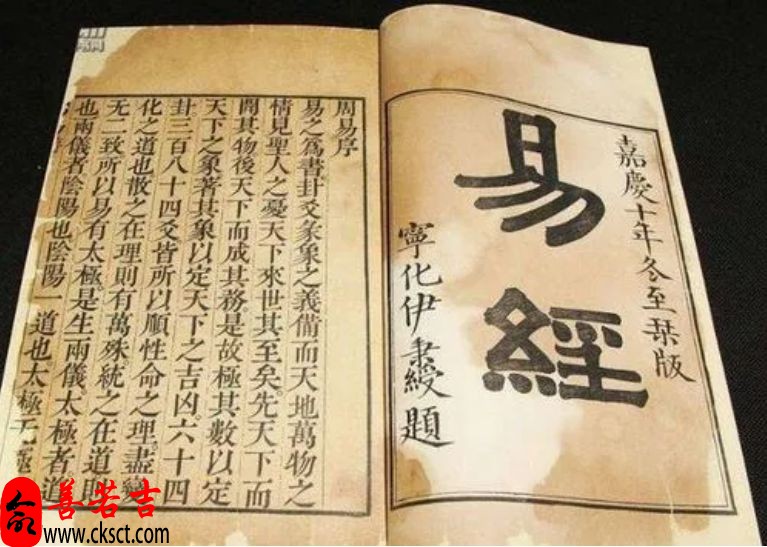 嘉慶十年冬至栞版
易經
寧化伊秉綬題
周易序
易之爲書卦爻彖象之義備而天地萬物之
情見聖人之憂天下來世其至矣。先天下而
開其物後天下而成其務是故極其數以定
天下之象著其象以定天下之吉凶。六十四
卦三百八十四爻皆所以順性命之理。盡變
化之道也散之在理則有萬殊。統之在道則
无二致所以易有太極。是生兩儀太極者。道
也兩儀者陰陽也陰陽一道也太極无極
善若吉
www.cksct.com